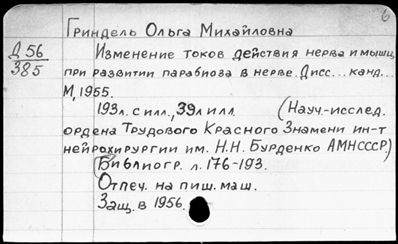 6
Гриндель Ольга Михайловна
Д 56
385
Изменение токов действия нерва и мышц
при развитии парабиоза в нерве. Дисс... канд...
М, 1955.
193л. с илл., 39л илл. (Науч.-исслед.
ордена Трудового Красного Знамени ин-т
нейрохирургии им. Н.Н. Бурденко АМНСССР)
Библиогр. л. 176-193.
Отпеч. на пиш. маш.
Защ. в 1956.